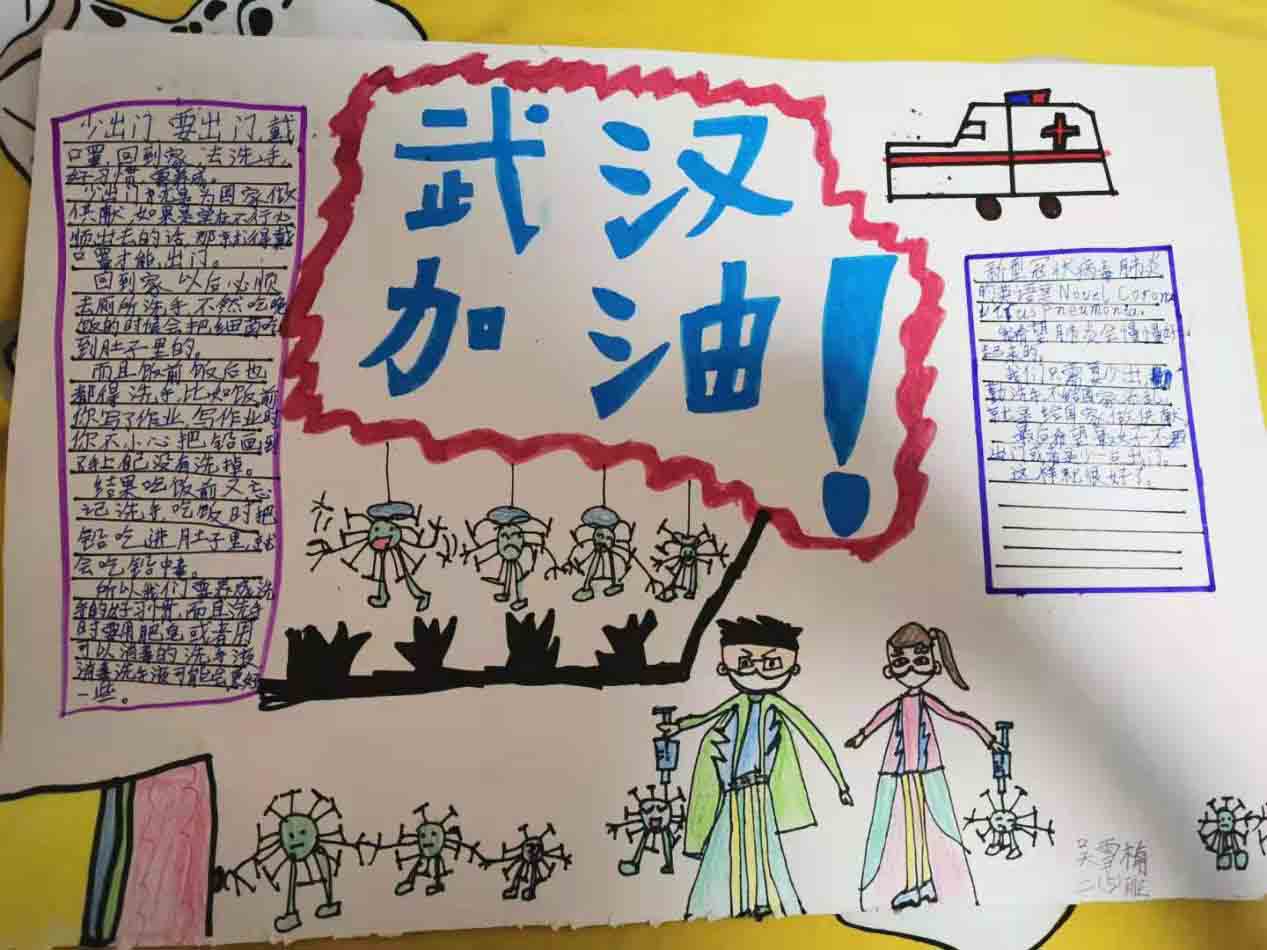 武汉
加油！
少出门,要出门,戴
口罩,回到家,去洗手,
好习惯,要养成。
少出门就是为国家做
供献,如果
出去的话,那就得戴
口罩才能出门。
回到家以后必顺
去厕所洗手,不然吃晚
饭的时候会把细菌吃
到肚子里的。
而且饭前饭后也
都得洗手,比如饭前
你写了作业,写作业时
你不小心把铅画到
手上自己没有洗掉。
结果吃饭前又忘
记洗手吃饭时把
铅吃进肚子里,就
会吃铅中毒。
所以我们要养成洗
手的好习惯,而且洗手
时要用肥皂或者用
可以消毒的洗手液
消毒洗手液可能会更好
一些。
新型冠状病毒肺炎
的英语是Novel Corona
virus Pneumonia.
希望肺炎会慢慢好
起来的。
我们只需要少出
勤洗手不给国家添乱
就是给国家做供献
最后希望大家不要
出门或者少一点出门。
这样就很好了。
吴雪楠
二(5)班